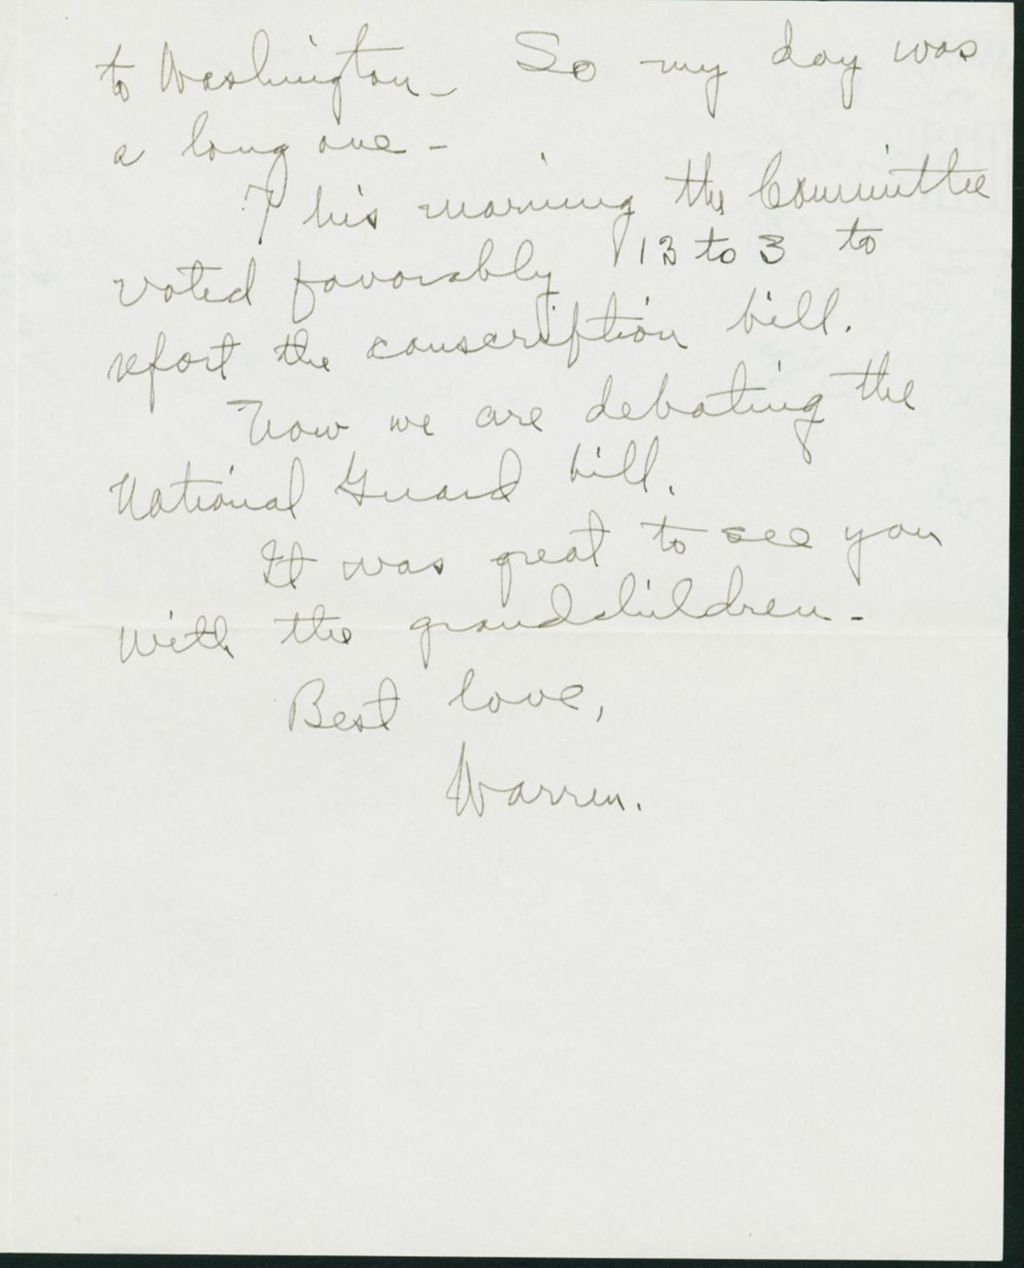 to Washington – So my day was
a long one –
This morning the Committee
voted favorably 13 to 3 to
report the conscription bill.
Now we are debating the
National Guard bill.
It was great to see you
with the grandchildren –
Best love,
Warren.